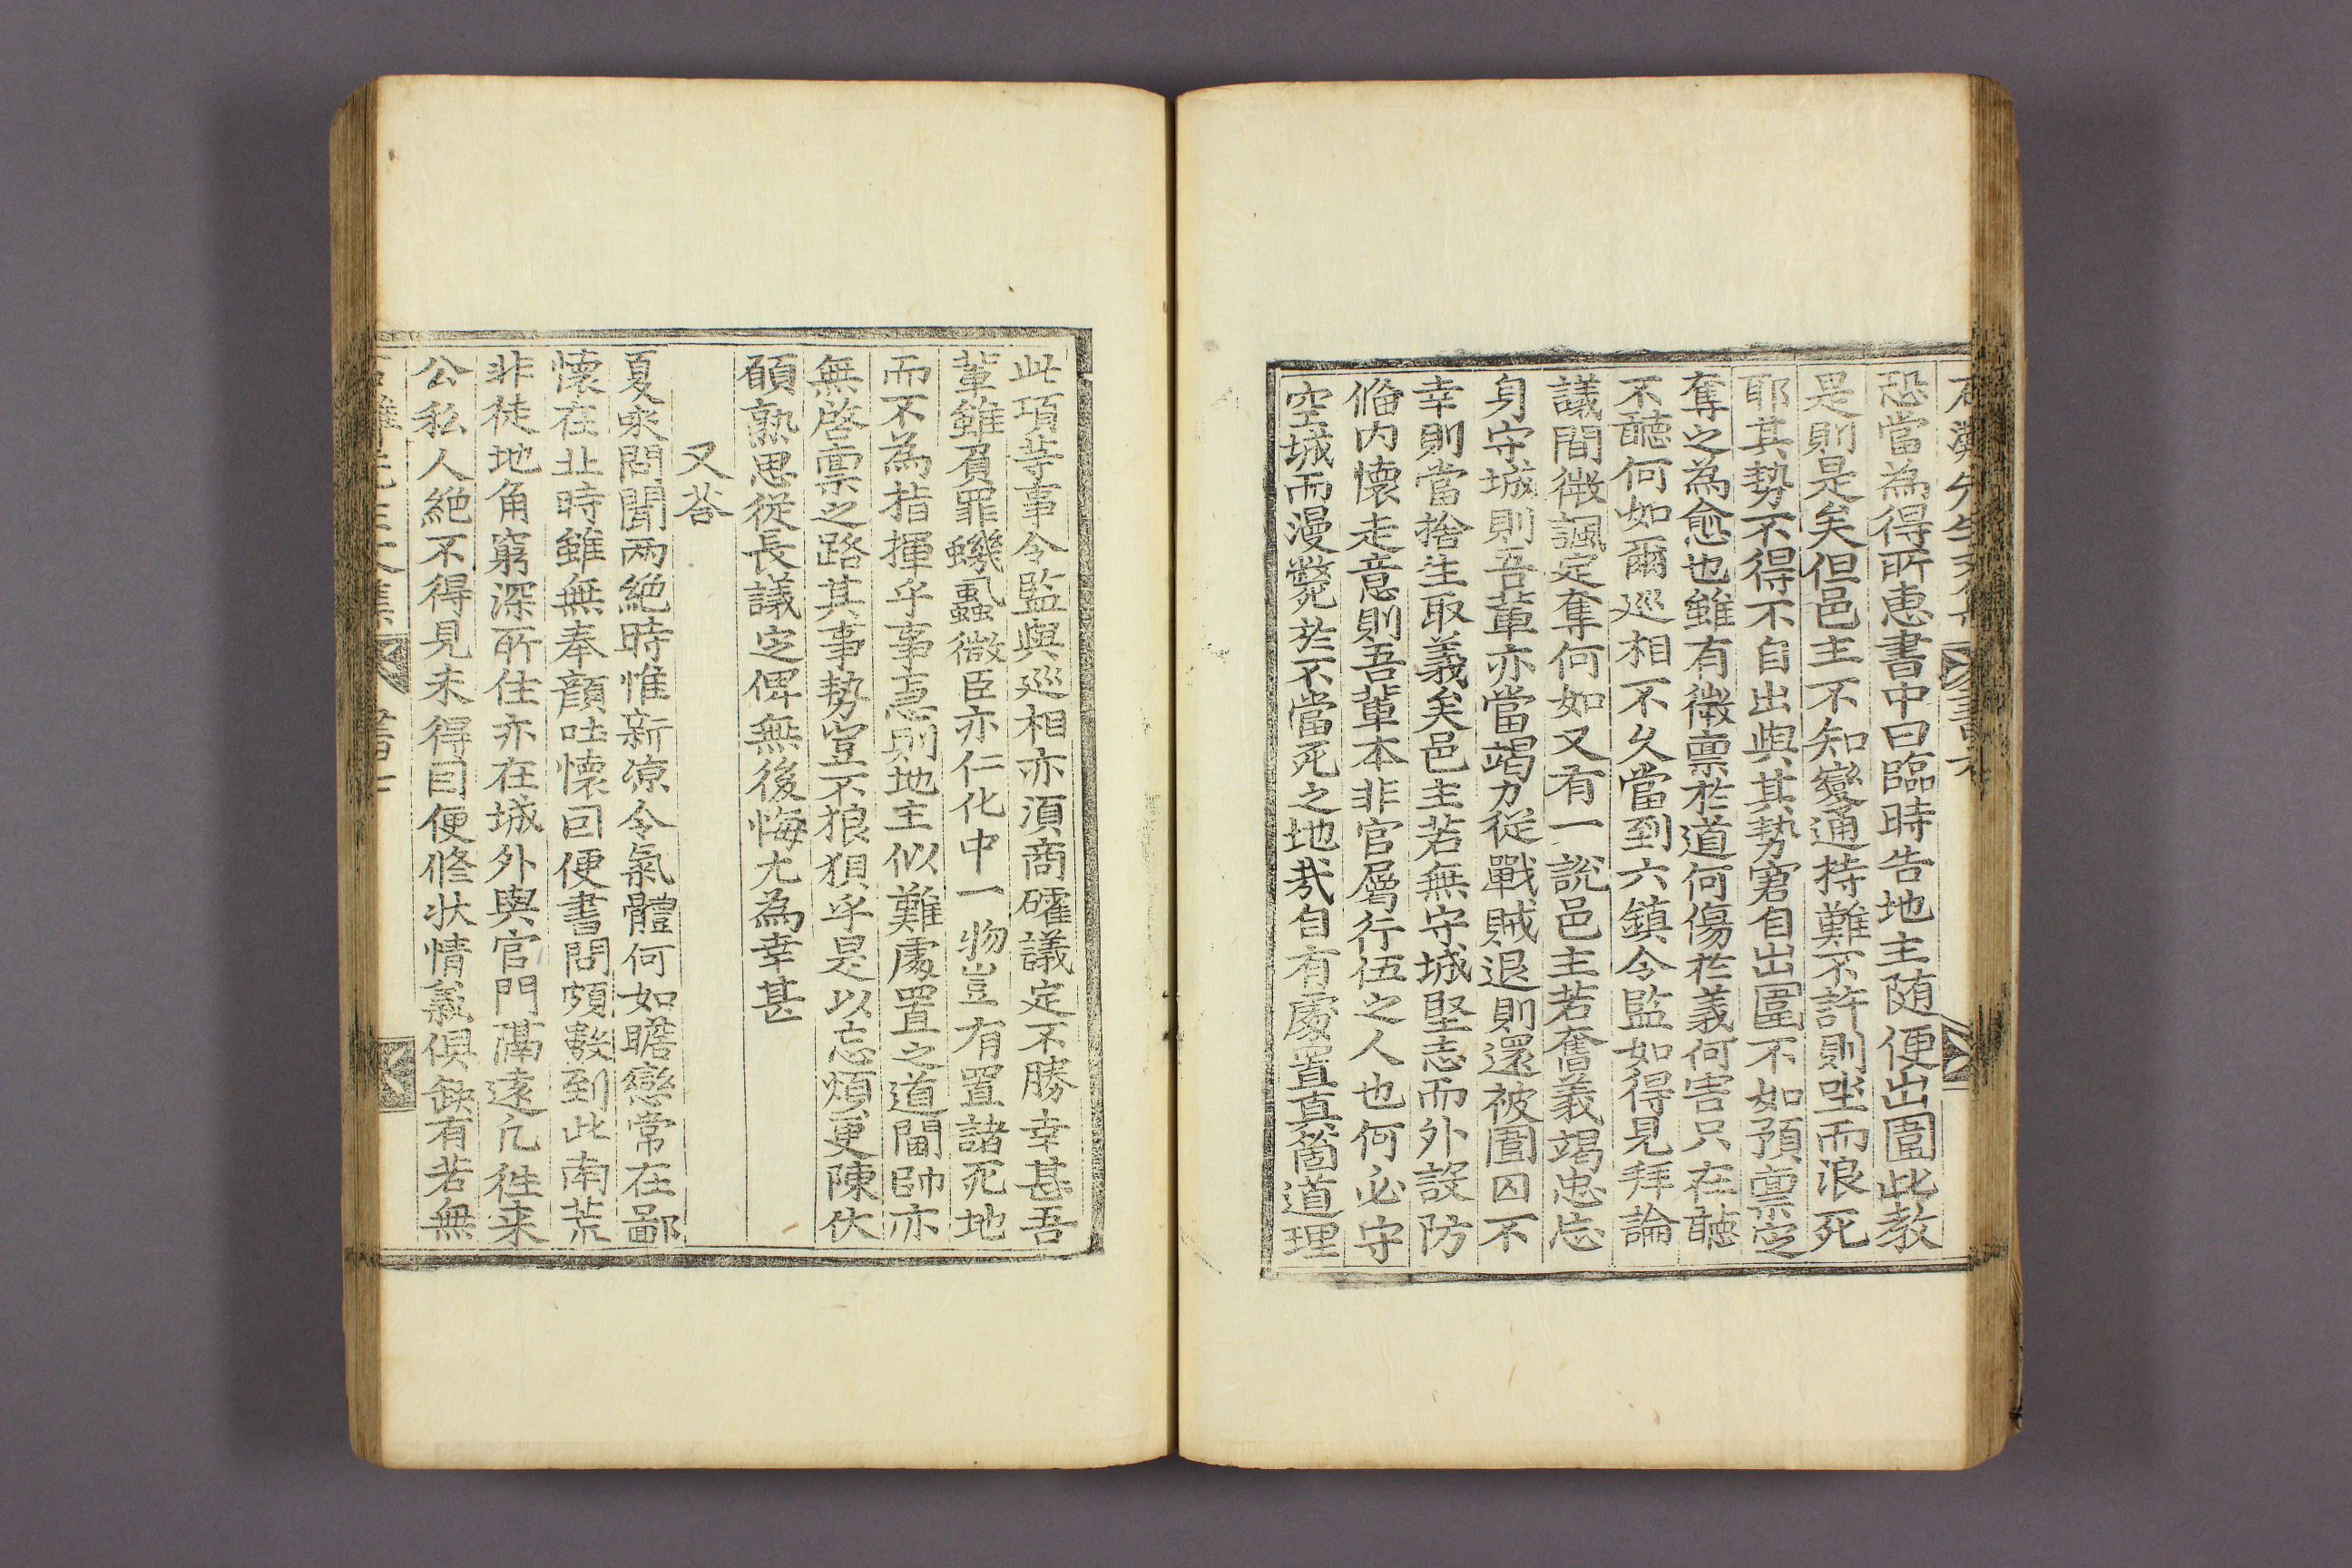 恐當為得所惠書中曰臨時告地主随便出圍此教
是則是矣但邑主不知變通持難不許則坐而浪死
耶其勢不得不自出與其勢窘自出圍不如預禀定
奪之為愈也雖有微禀於道何傷於義何害只在聽
不聽何如爾巡相不久當到六鎮令監如得見拜論
議間微諷定奪何如又有一說邑主若奮義竭忠忘
身守城則吾軰亦當竭力従戰賊退則還被圍囚不
幸則當捨生取義矣邑主若無守城堅志而外設防
俻内懐走意則吾軰本非官屬行伍之人也何必守
空城而漫斃於不當死之地㦲自有處置真箇道理
此項等事令監與巡相亦湏商確議定不勝幸甚吾
軰雖負罪蟣虱微臣亦仁化中一物豈有置諸死地
而不為指揮乎事急則地主似難處置之道閫帥亦
無啓禀之路其事勢豈不狼狽乎是以忘煩更陳伏
願熟思従長議定俾無後悔尤為幸甚
又荅
夏來問聞兩絶時惟新凉令氣體何如瞻戀常在鄙
懐在北時雖無奉顔吐懐回便書問頗數到此南荒
非徒地角窮深所住亦在城外與官門隔遠凡徃来
公私人絶不得見未得因便修状情義俱缺有若無